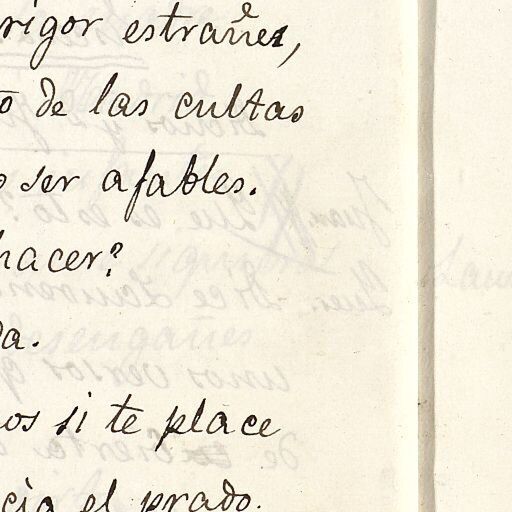 rigor estrañes,
o de las cultas
o ser afables.
hacer?
da.
os si te place
cia el prado.